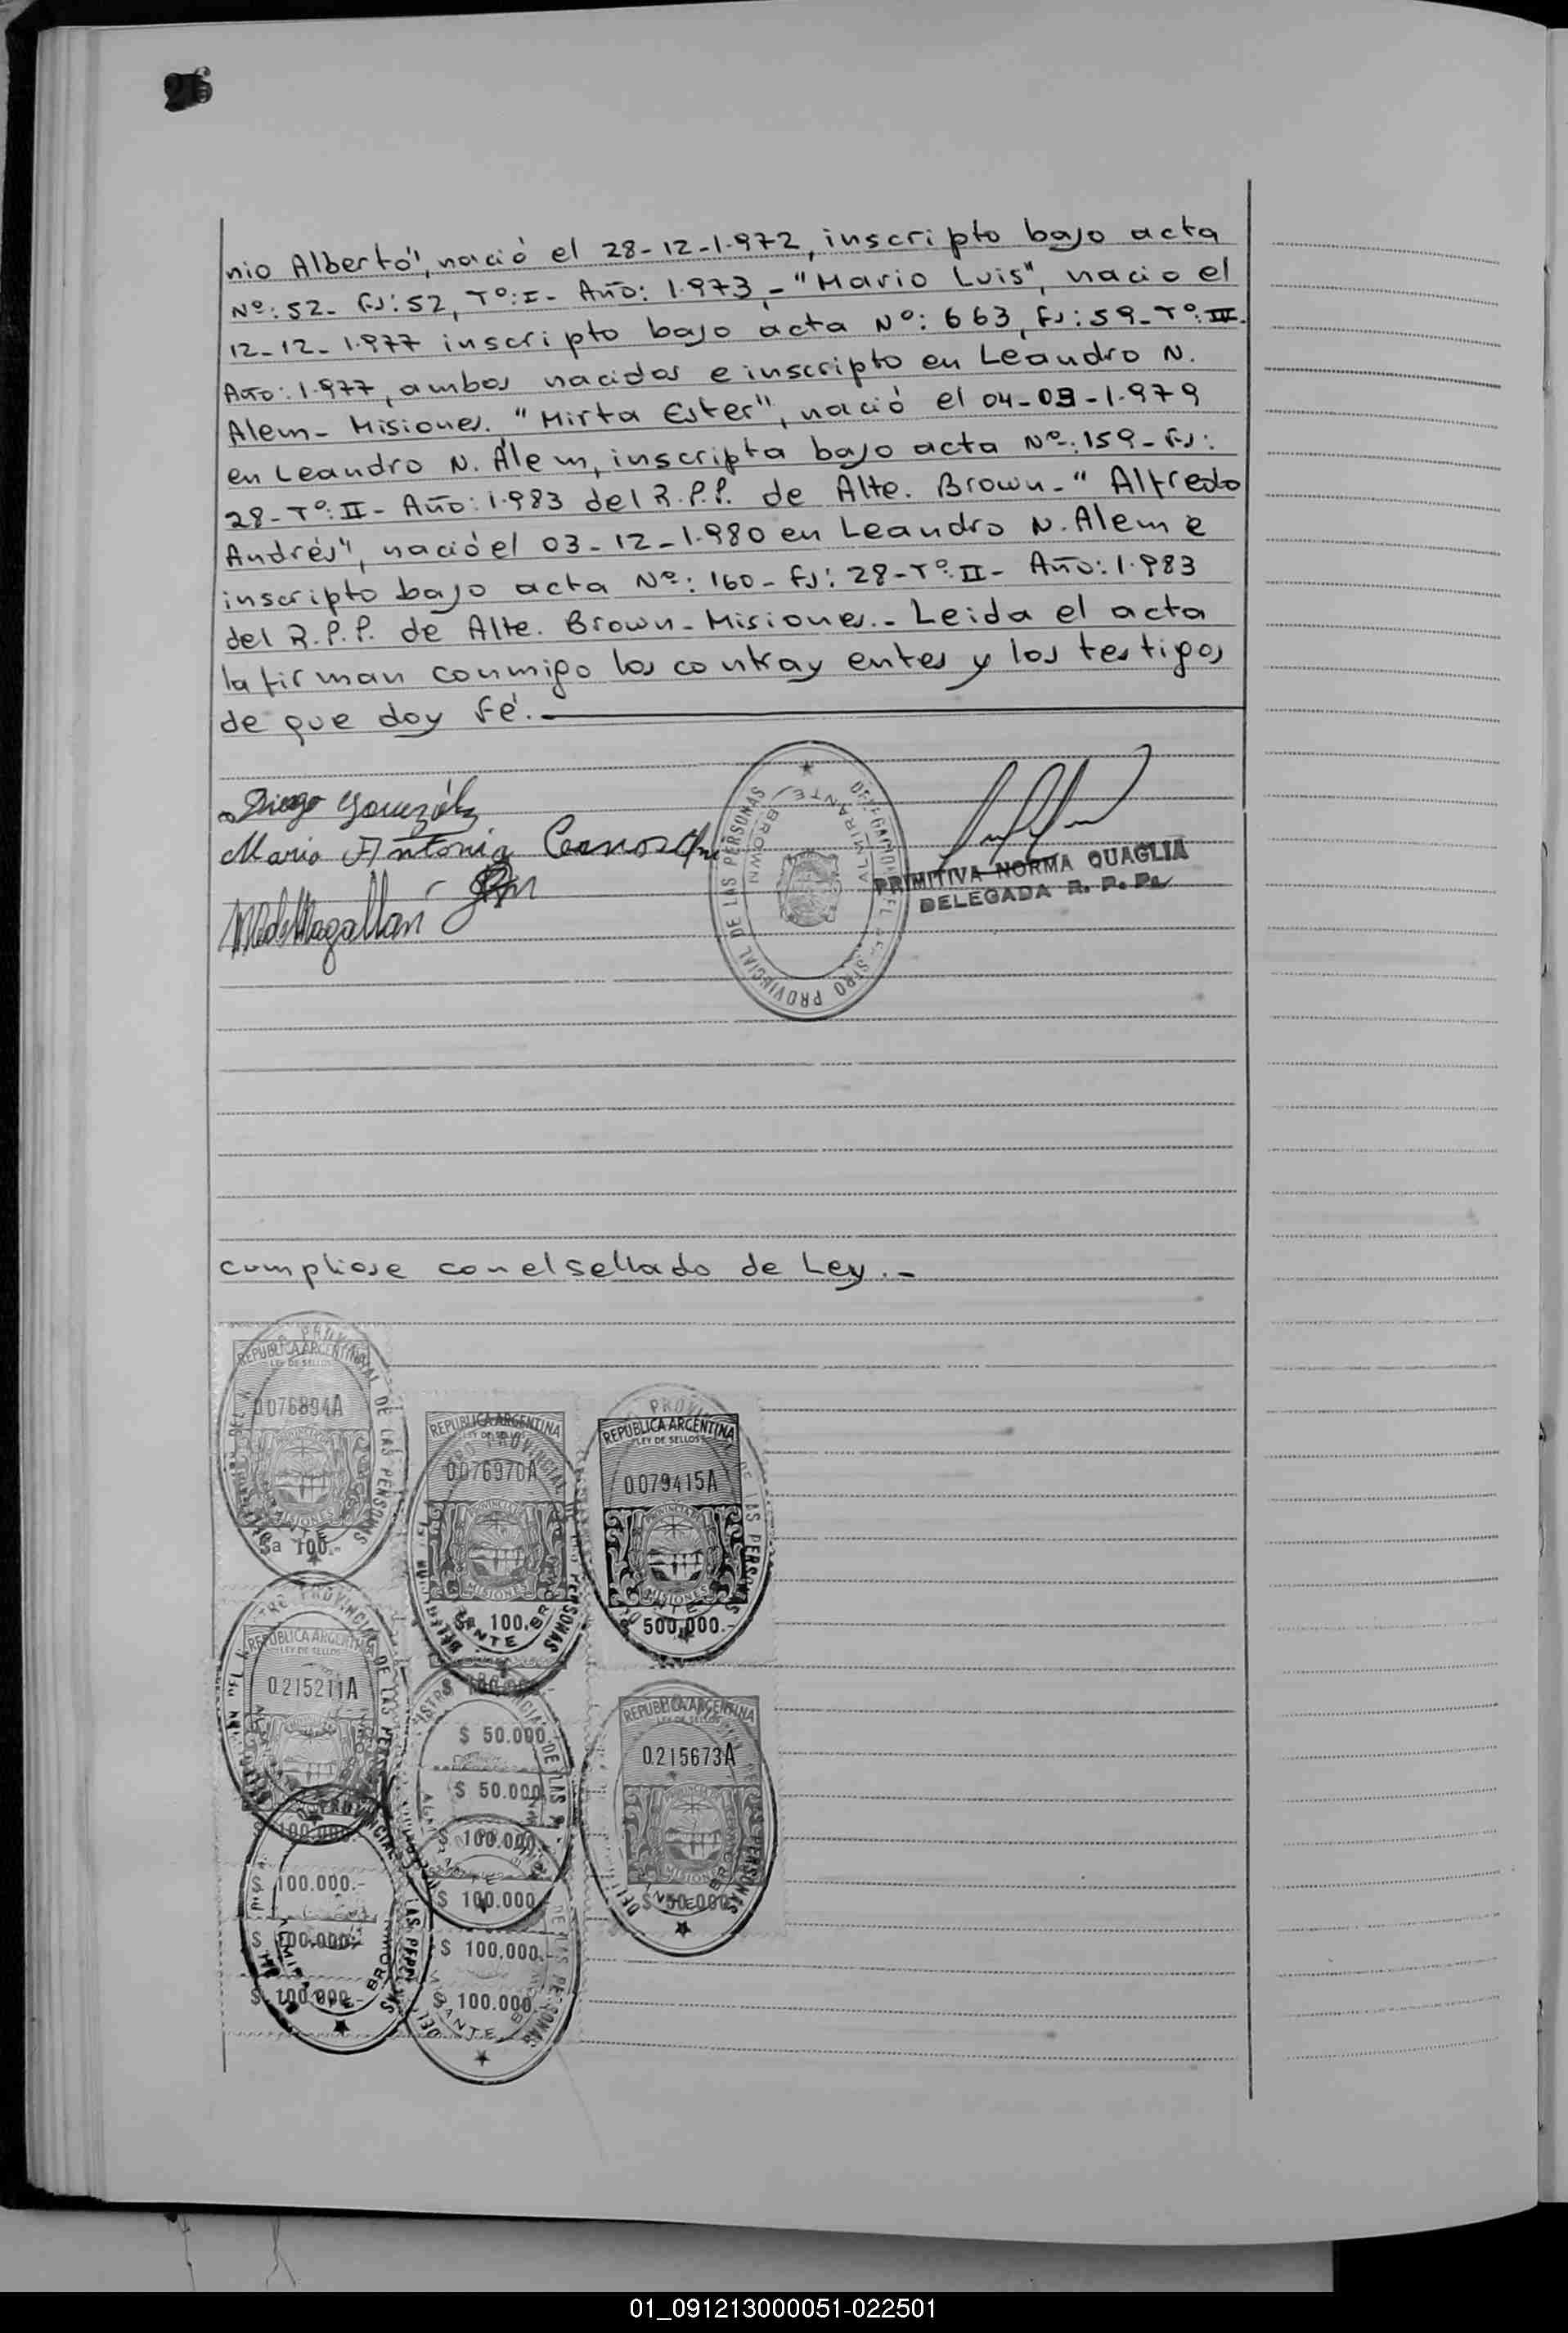 26
nio Alberto", nació el 28-12-1.972, inscripto bajo acta
Nº: 52- FJ: 52, Tº: I- Año: 1.973,- "Mario Luis", nacio el
12-12-1.977 inscripto bajo acta Nº: 663, FJ: 59-Tº: III-
Año: 1.977, ambos nacidos e inscripto en Leandro N.
Alem- Misiones. "Mirta Ester", nació el 04-03-1.979
en Leandro N. Alem, inscripta bajo acta Nº: 159- FJ:
28-Tº: II- Año: 1.983 del R.P.P. de Alte. Brown-" Alfredo
Andrés", nació el 03-12-1.980 en Leandro N. Alem e
inscripto bajo acta Nº: 160- FJ: 28-Tº: II- Año: 1.983
del R.P.P. de Alte. Brown-Misiones.- Leida el acta
la firman conmigo los contrayentes y los testigos
de que doy fé.-
Diego González
Maria Antonia
DELEGACION DEL REGISTRO PROVINCIAL DE LAS PERSONAS
ALMIRANTE BROWN
PRIMITIVA NORMA QUAGLIA
DELEGADA R. P. P.
cumpliose con el sellado de Ley.-
REPUBLICA ARGENTINA
LEY DE SELLOS
0076894A
MISIONES
$a 100.-
REPUBLICA ARGENTINA
LEY DE SELLOS
0076970A
PROVINCIA DE
MISIONES
$a 100.-
REPUBLICA ARGENTINA
LEY DE SELLOS
0079415A
PROVINCIA DE
MISIONES
$ 500.000.-
REPUBLICA ARGENTINA
LEY DE SELLOS
0215211A
$ 100.000.-
$ 100.000.-
$ 100.000.-
$ 100.000.-
$ 50.000.-
$ 50.000.-
$ 100.000.-
$ 100.000.-
$ 100.000.-
$ 100.000.-
REPUBLICA ARGENTINA
LEY DE SELLOS
0215673A
MISIONES
$ 50.000.-
01_091213000051-022501